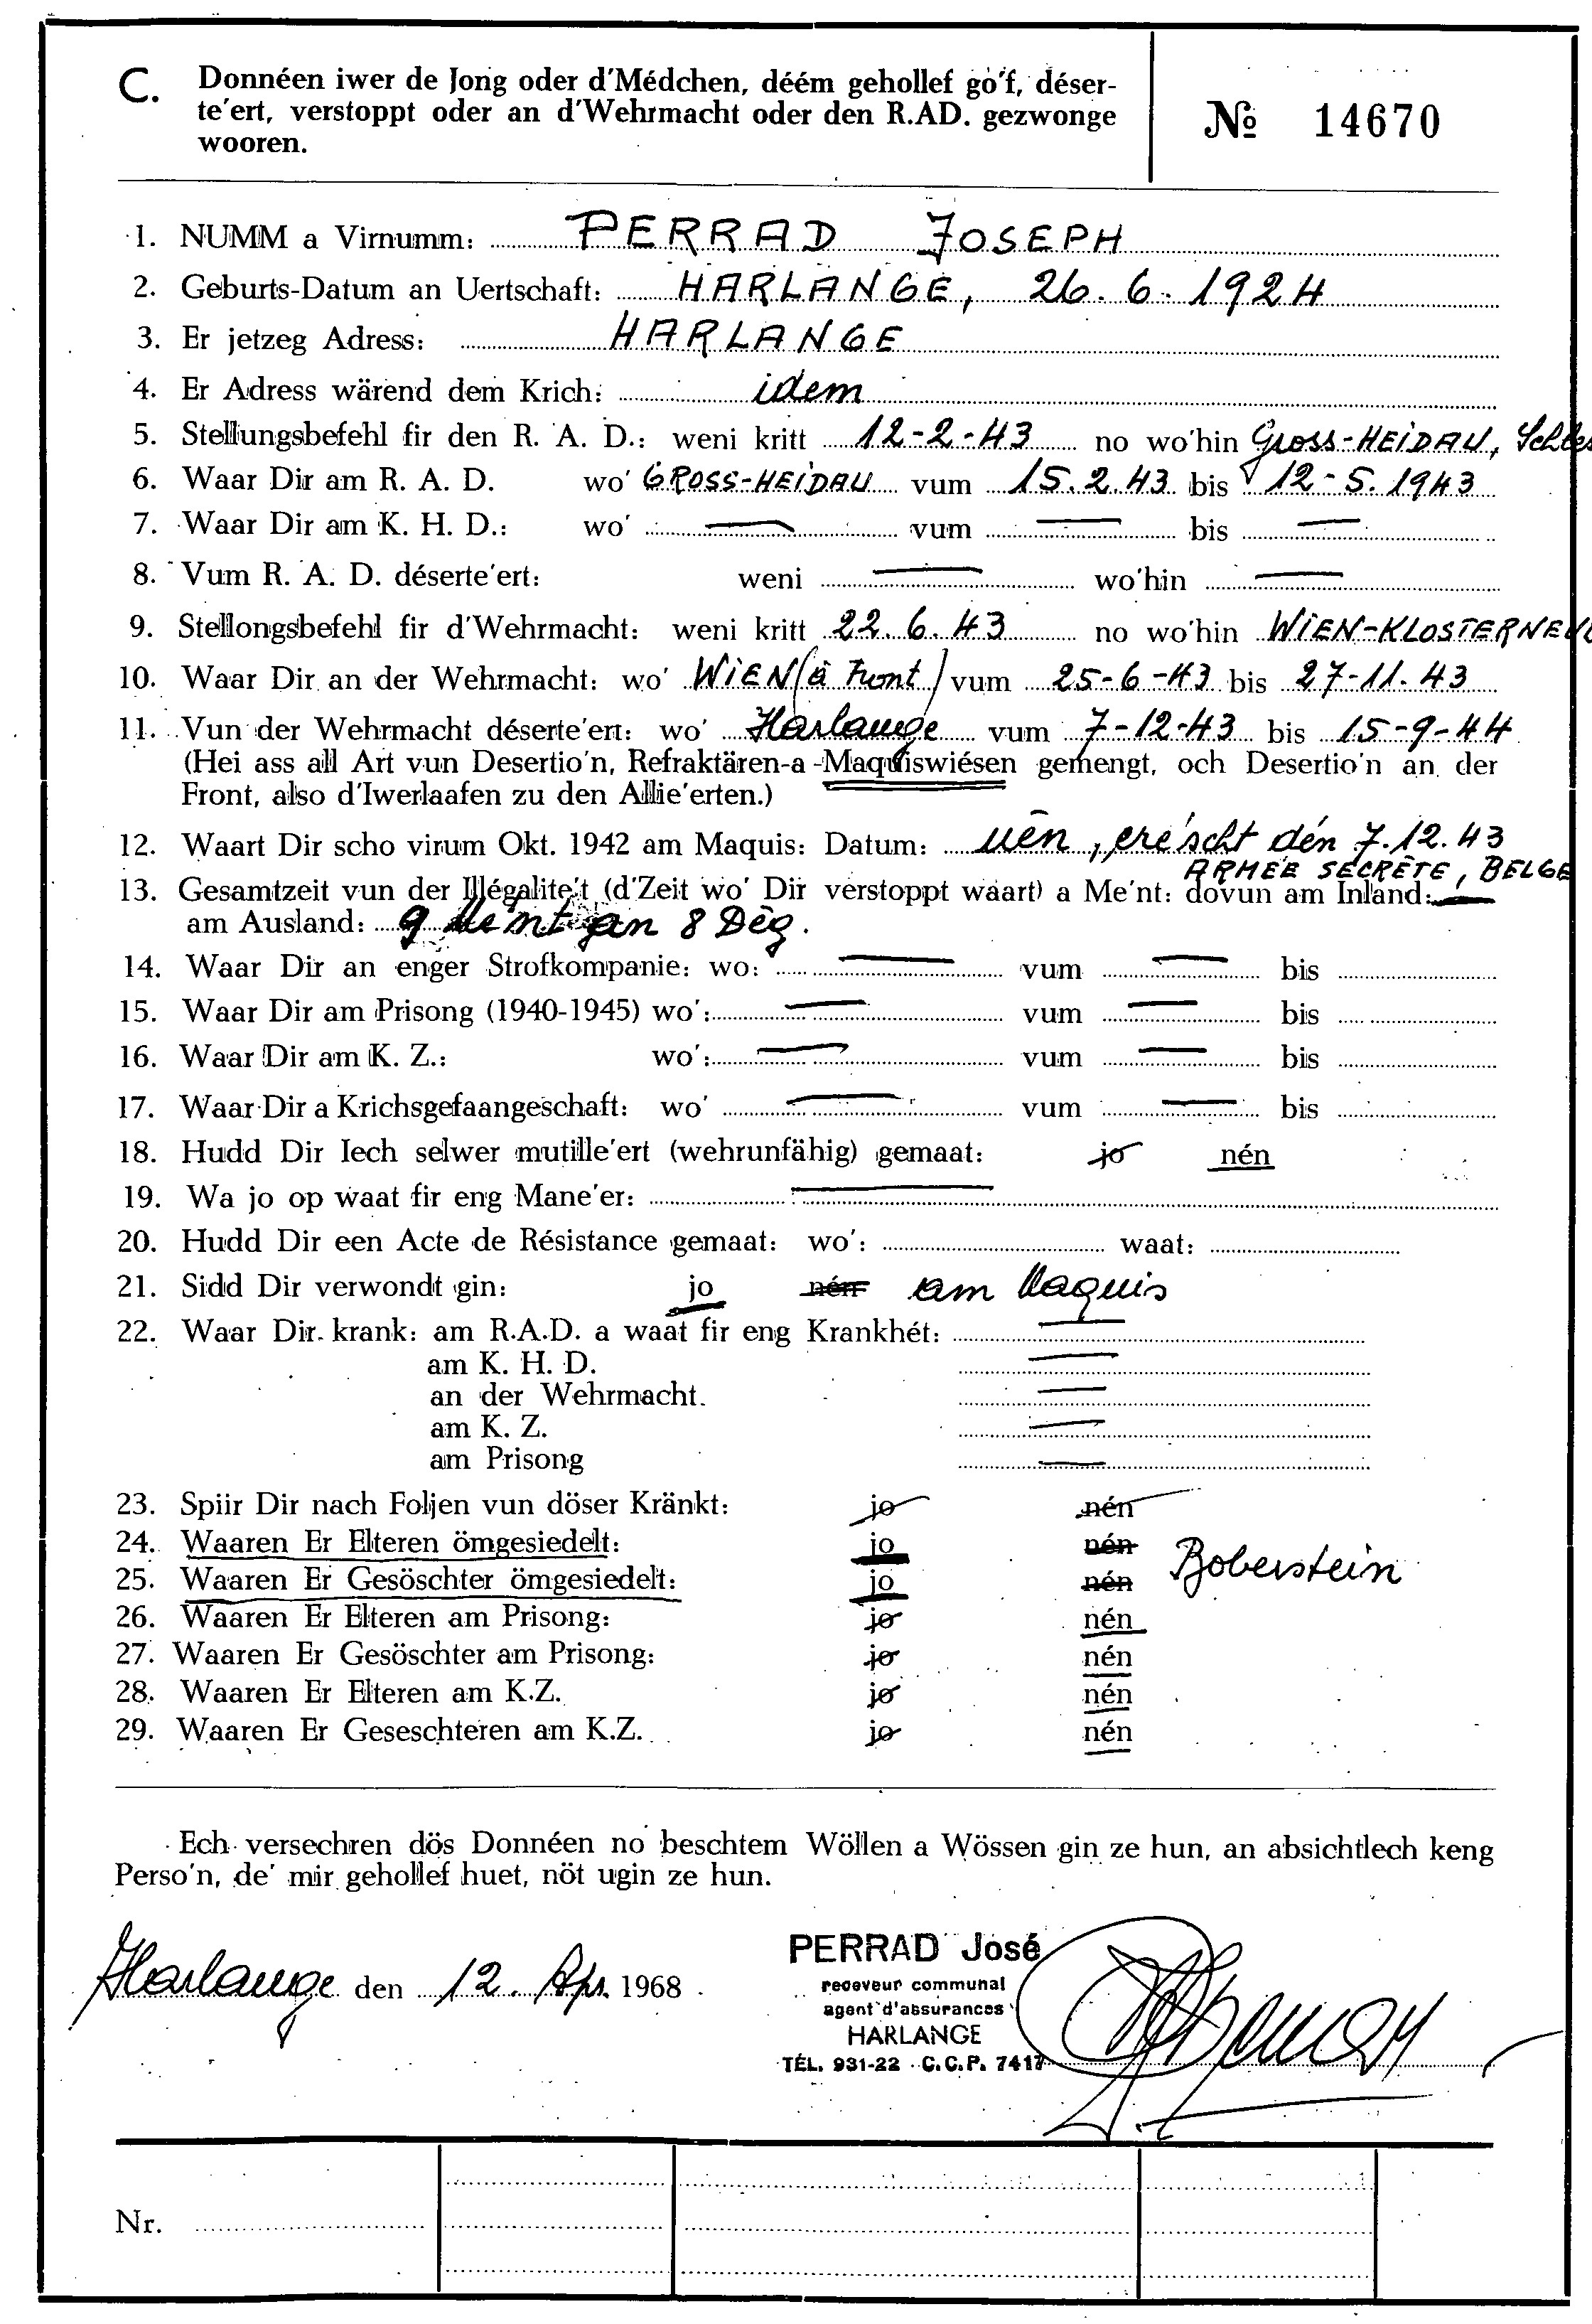 C. Donnéen iwer de Jong oder d'Médchen, déém gehollef go'f, déser-
te'ert, verstoppt oder an d'Wehrmacht oder den R.AD. gezwonge
wooren.
№ 14670
1. NUMM a Virnumm: PERRAD JOSEPH
2. Geburts-Datum an Uertschaft: HARLANGE, 26.6.1924
3. Er jetzeg Adress: HARLANGE
4. Er Adress wärend dem Krich: idem
5. Stellungsbefehl fir den R. A. D.: weni kritt 12-2-43 no wo'hin GROSS-HEIDAU, Schles
6. Waar Dir am R. A. D. wo' GROSS-HEIDAU vum 15.2.43 bis 12-5.1943
7. Waar Dir am K. H. D.: wo' — vum — bis —
8. Vum R. A. D. déserte'ert: weni — wo'hin —
9. Stellongsbefehl fir d'Wehrmacht: weni kritt 22.6.43 no wo'hin WIEN-KLOSTERNEU
10. Waar Dir an der Wehrmacht: wo' WIEN (à Front) vum 25-6-43 bis 27-11.43
11. Vun der Wehrmacht déserte'ert: wo' Harlange vum 7-12-43 bis 15-9-44
(Hei ass all Art vun Desertio'n, Refraktären-a -Maquiswiésen gemengt, och Desertio'n an der
Front, also d'Iwerlaafen zu den Allie'erten.)
12. Waart Dir scho virum Okt. 1942 am Maquis: Datum: nën, ere'scht dén 7.12.43
ARMÉE SECRÈTE, BELGE
13. Gesamtzeit vun der Illégalite't (d'Zeit wo' Dir verstoppt waart) a Me'nt: dovun am Inland: —
am Ausland: 9 Me'nt an 8 Dèg.
14. Waar Dir an enger Strofkompanie: wo: — vum — bis
15. Waar Dir am Prisong (1940-1945) wo': — vum — bis
16. Waar Dir am K. Z.: wo': — vum — bis
17. Waar Dir a Krichsgefaangeschaft: wo' — vum — bis
18. Hudd Dir Iech selwer mutille'ert (wehrunfähig) gemaat: jo nén
19. Wa jo op waat fir eng Mane'er: —
20. Hudd Dir een Acte de Résistance gemaat: wo': waat:
21. Sidd Dir verwondt gin: jo nén am Maquis
22. Waar Dir krank: am R.A.D. a waat fir eng Krankhét: —
am K. H. D. —
an der Wehrmacht. —
am K. Z. —
am Prisong —
23. Spiir Dir nach Foljen vun döser Kränkt: jo nén
24. Waaren Er Elteren ömgesiedelt: jo nén
25. Waaren Er Gesöschter ömgesiedelt: jo nén Boberstein
26. Waaren Er Elteren am Prisong: jo nén
27. Waaren Er Gesöschter am Prisong: jo nén
28. Waaren Er Elteren am K.Z. jo nén
29. Waaren Er Geseschteren am K.Z. jo nén
Ech versechren dös Donnéen no beschtem Wöllen a Wössen gin ze hun, an absichtlech keng
Perso'n, de' mir gehollef huet, nöt ugin ze hun.
Harlange den 12. Apr. 1968
PERRAD José
receveur communal
agent d'assurances
HARLANGE
TÉL. 931-22 C.C.P. 7417
Nr.